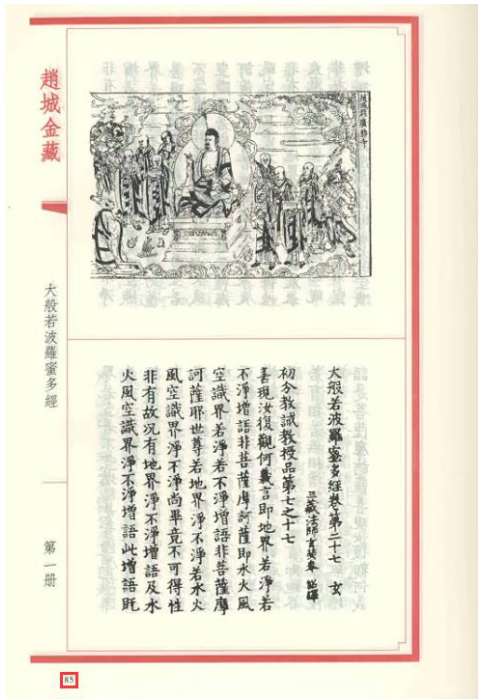 趙城金藏
大般若波羅蜜多經
第一册
趙城縣廣勝寺
大般若波羅蜜多經卷第二十七 玄
三藏法師玄奘奉 詔譯
初分教誡教授品第七之十七
善現汝復觀何義言即地界若淨若
不淨增語非菩薩摩訶薩即水火風
空識界若淨若不淨增語非菩薩摩
訶薩耶世尊若地界淨不淨若水火
風空識界淨不淨尚畢竟不可得性
非有故況有地界淨不淨增語及水
火風空識界淨不淨增語此增語既
85